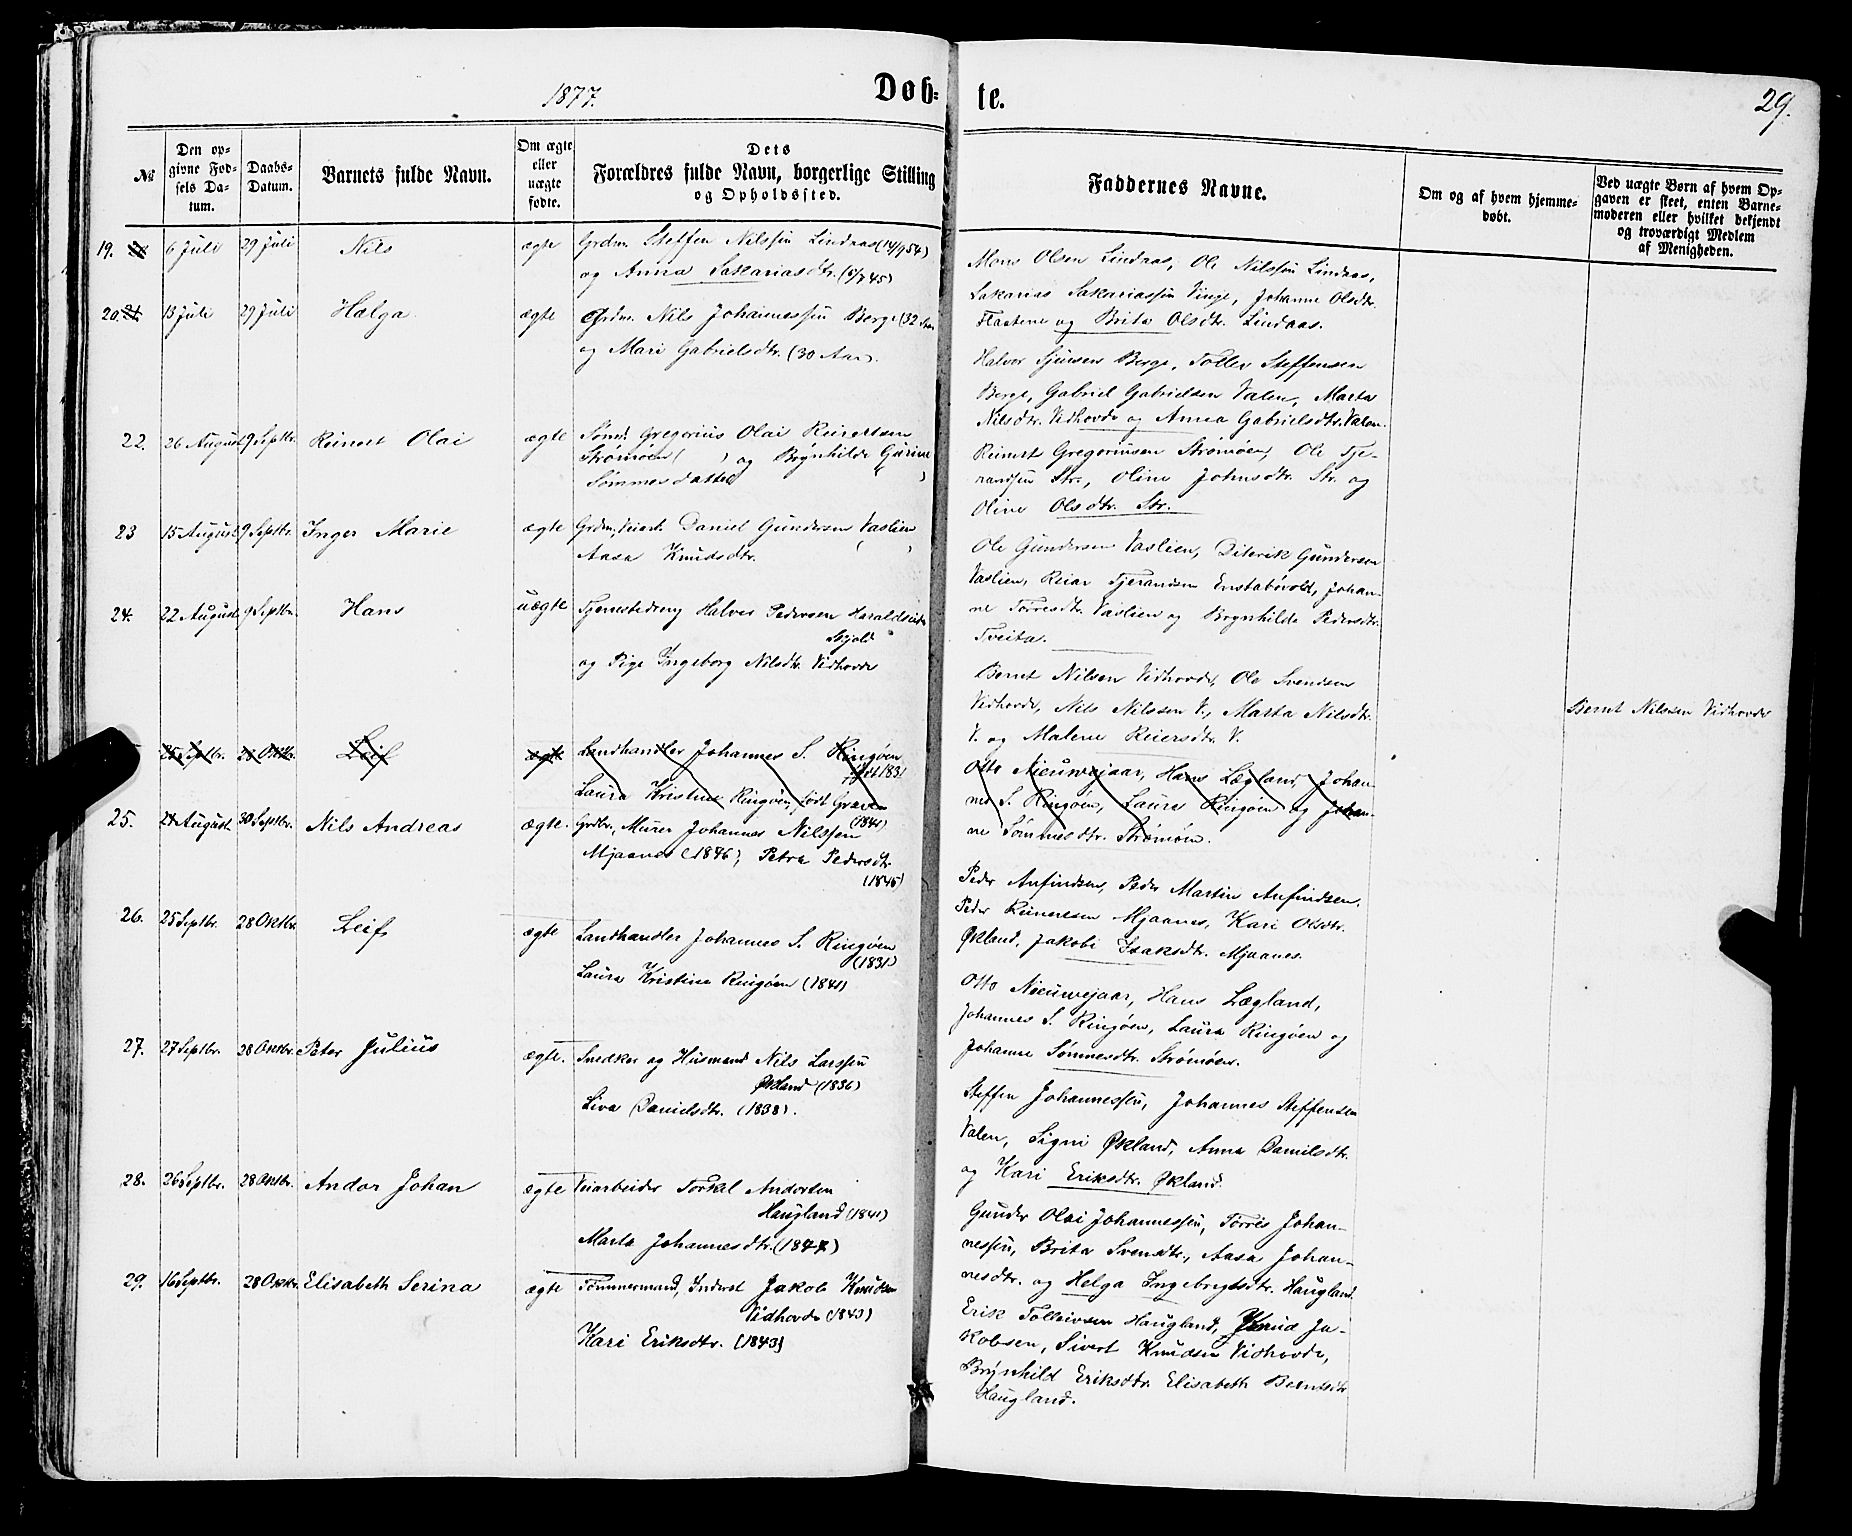 1877.
Døb=
te.
29.
№
Den op-
givne Fød-
sels Da-
tum.
Daabs-
Datum.
Barnets fulde Navn.
Om ægte
eller
uægte
fødte.
Dets
Forældres fulde Navn, borgerlige Stilling
og Opholdssted.
Faddernes Navne.
Om og af hvem hjemme-
døbt.
Ved uægte Børn af hvem Op-
gaven er skeet, enten Barne-
moderen eller hvilket bekjendt
og troværdigt Medlem
af Menigheden.
19. 6 Juli 29 Juli Nils ægte Grdm. Steffen Nilssøn Lindaas (14/9 54)
og Anna Sakariasdtr. (5/7 45)
Mons Olsen Lindaas, Ole Nilssøn Lindaas,
Sakarias Sakariassøn Vinje, Johanne Olsdtr.
Flaatene og Brita Olsdtr. Lindaas.
20. 21. 13 Juli 29 Juli Hælga ægte Grdm. Nils Johannessøn Berge (32 Aar
og Mari Gabrielsdtr. (30 Aar).
Halvor Sjursen Berge, Tollev Steffensen
Berge, Gabriel Gabrielsen Valen, Marta
Nilsdtr. Vidhovde og Anna Gabrielsdtr. Valen.
22. 26 August 9 Septbr. Reinert Olai ægte Sømd. Gregorius Olai Reinertsen
Strømøen ( ) og Brynhilde Gurine
Sømmesdatter ( )
Reinert Gregoriussen Strømøen, Ole Tje-
randsen Str., Oline Johnsdtr. Str. og
Oline Olsdtr. Str.
23 15 August 9 Septbr. Inger Marie ægte Grdm., Veiarb. Daniel Gundersen Vaslien
Aasa Knudsdtr. ( )
Ole Gundersen Vaslien, Diderik Gundersen
Vaslien, Reiar Tjerandsen Enstabøvold, Johan-
ne Torresdtr. Vaslien og Brynhilde Pedersdtr.
Tveita.
24. 22 August 9 Septbr. Hans uægte Tjenestedreng Halvor Pedersen Haraldseide
Skjold
og Pige Ingeborg Nilsdtr. Vidhovde
Bernt Nilsen Vidhovde, Ole Svendsen
Vidhovde, Nils Nilssen V., Marta Nilsdtr.
V. og Malene Reiersdtr. V.
Bernt Nilssen Vidhovde
25 Septbr. 28 Oktbr. Leif ægte Landhandler Johannes S. Ringøen
født 1831
Laura Kristine Ringøen, født Graven
(1841)
Otto Nieuwejaar, Hans Lægland, Johan-
nes S. Ringøen, Laura Ringøen og Johan-
ne Sømmesdtr. Strømøen.
25. 21 August 30 Septbr. Nils Andreas ægte. Grdbr., Murer Johannes Nilssen
Mjaanes (1846), Petra Pedersdtr.
(1845)
Peder Anfindsen, Peder Martin Anfindsen,
Peder Reinertsen Mjaanes, Kari Olsdtr.
Økland, Jakobi Isaksdtr. Mjaanes.
26. 25 Septbr. 28 Oktbr. Leif ægte Landhandler Johannes S. Ringøen
(1831)
Laura Kristina Ringøen (1841)
Otto Nieuwejaar, Hans Lægland,
Johannes S. Ringøen, Laura Ringøen og
Johanne Sømmesdtr. Strømøen.
27. 27 Septbr. 28 Oktbr. Peter Julius ægte. Snedker og Husmand Nils Larssen
Økland (1836)
Liva Danielsdtr. (1838).
Steffen Johannessen, Johannes Steffensen
Valen, Signi Økland, Anna Danielsdtr.
og Kari Eriksdtr. Økland.
28. 26 Septbr. 28 Oktbr. Andor Johan ægte Veiarbeider Torkel Andorsen
Haugland (1841)
Marta Johannesdtr. (1847)
Gunder Olai Johannessen, Torris Johan-
nessen, Brita Svendtr., Aasa Johan-
nesdtr. og Helga Ingebrigtsdtr. Haugland.
29. 16 Septbr. 28 Oktbr. Elisabeth Serina ægte Tømmermand, Inderst Jakob Knudsen
Vidhovde (1843)
Kari Eriksdtr. (1843)
Erik Tolleivsen Haugland, Knud Ja-
kobsen, Sivert Knudsen Vidhovde,
Brynhild Eriksdtr. Elisabeth Berntsdtr.
Haugland.